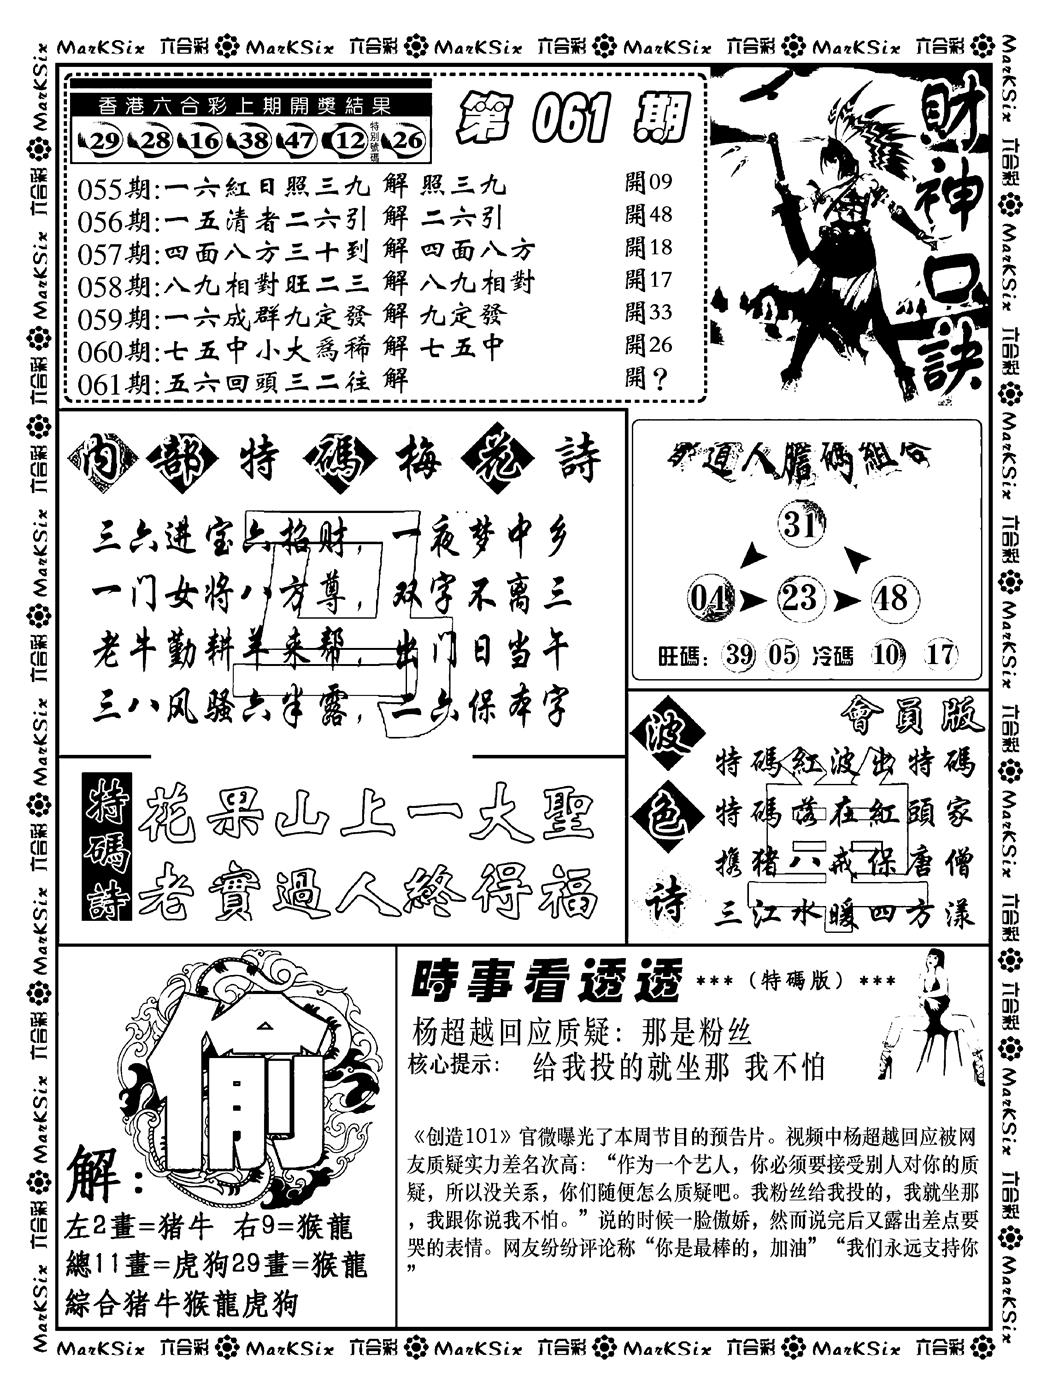 MarKSix 六合彩 MarKSix 六合彩 MarKSix 六合彩 MarKSix 六合彩 MarKSix 六合彩
香港六合彩上期開獎結果
29 28 16 38 47 12 特別號碼 26
第 061 期
055期:一六紅日照三九 解 照三九 開09
056期:一五清者二六引 解 二六引 開48
057期:四面八方三十到 解 四面八方 開18
058期:八九相對旺二三 解 八九相對 開17
059期:一六成群九定發 解 九定發 開33
060期:七五中小大爲稀 解 七五中 開26
061期:五六回頭三二往 解 開?
財神口訣
内部特碼梅花詩
三六进宝六招财,一夜梦中乡
一门女将八方尊,双字不离三
老牛勤耕羊来帮,出门日当午
三八风骚六半露,二六保本字
道人膽碼組合
31
04 23 48
旺碼: 39 05 冷碼 10 17
特碼詩
花果山上一大聖
老實過人終得福
波色诗
會員版
特碼紅波出特碼
特碼落在紅頭家
携猪八戒保唐僧
三江水暖四方漾
解:
左2畫=猪牛 右9=猴龍
總11畫=虎狗29畫=猴龍
綜合猪牛猴龍虎狗
時事看透透 ***(特碼版)***
杨超越回应质疑: 那是粉丝
核心提示: 给我投的就坐那 我不怕
《创造101》官微曝光了本周节目的预告片。视频中杨超越回应被网
友质疑实力差名次高: “作为一个艺人,你必须要接受别人对你的质
疑,所以没关系,你们随便怎么质疑吧。我粉丝给我投的,我就坐那
,我跟你说我不怕。”说的时候一脸傲娇,然而说完后又露出差点要
哭的表情。网友纷纷评论称“你是最棒的,加油”“我们永远支持你
”
MarKSix 六合彩 MarKSix 六合彩 MarKSix 六合彩 MarKSix 六合彩 MarKSix 六合彩